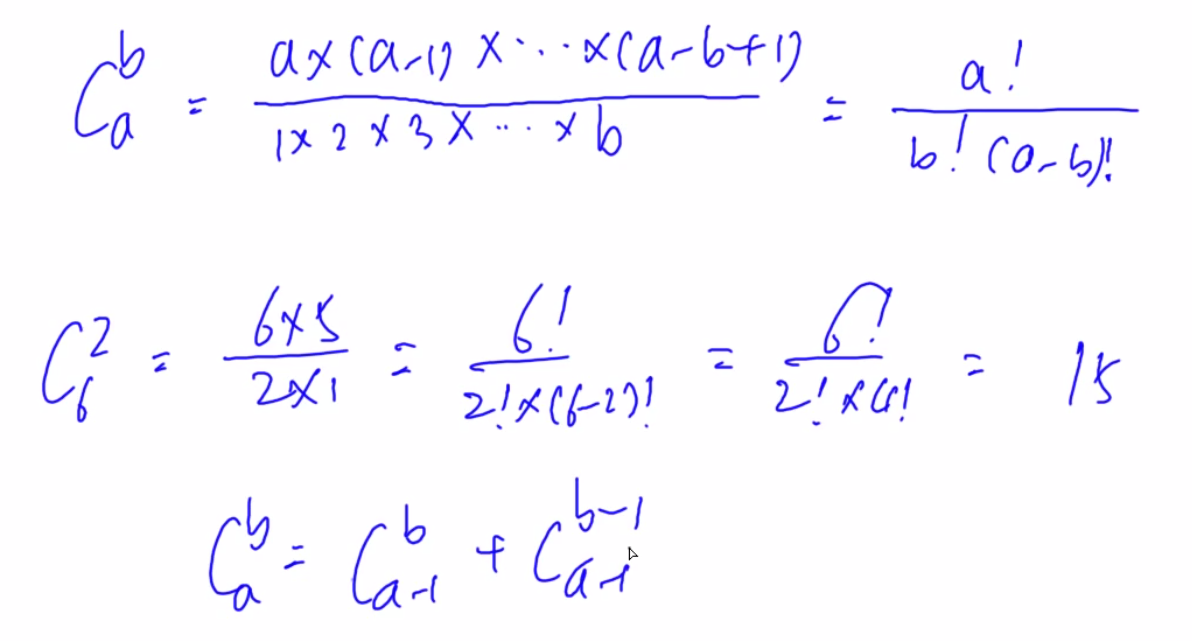 C_a^b = \frac{a×(a-1)×···×(a-b+1)}{1×2×3×···×b} = \frac{a!}{b!(a-b)!}
C_6^2 = \frac{6×5}{2×1} = \frac{6!}{2!×(6-2)!} = \frac{6!}{2!×4!} = 15
C_a^b = C_{a-1}^b + C_{a-1}^{b-1}